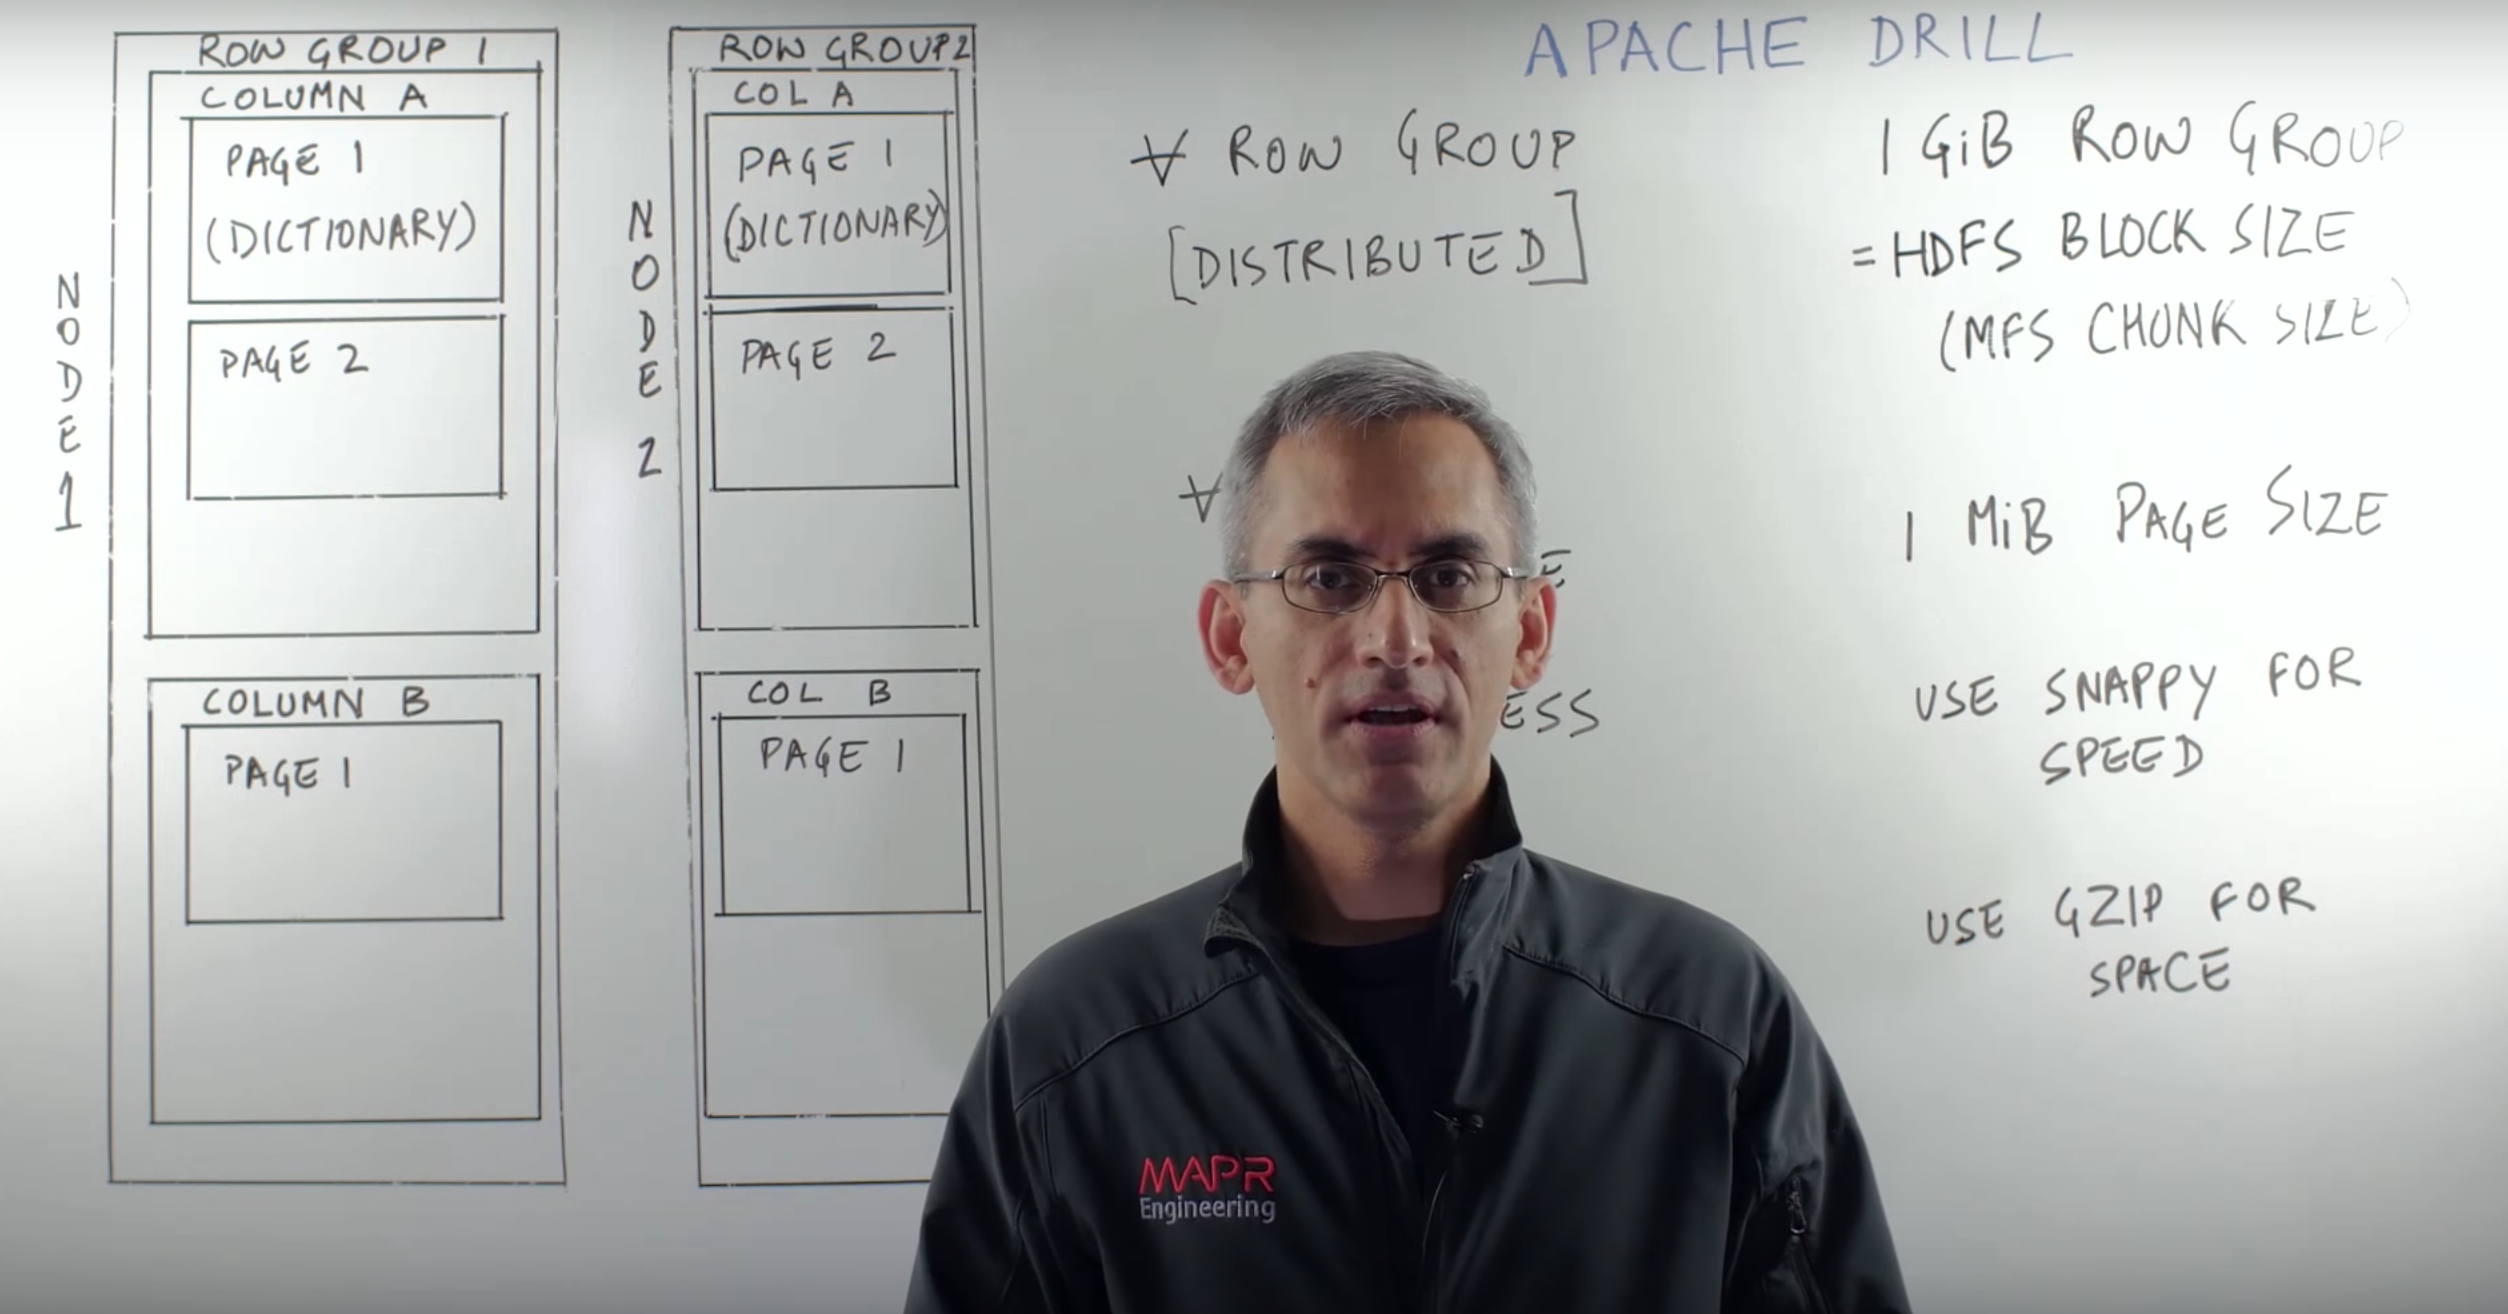 ROW GROUP 1
COLUMN A
PAGE 1
(DICTIONARY)
PAGE 2
COLUMN B
PAGE 1
NODE 1
ROW GROUP 2
COL A
PAGE 1
(DICTIONARY)
PAGE 2
COL B
PAGE 1
NODE 2
∀ ROW GROUP
[DISTRIBUTED]
∀
APACHE DRILL
1 GiB ROW GROUP
= HDFS BLOCK SIZE
(MFS CHUNK SIZE)
1 MiB PAGE SIZE
USE SNAPPY FOR
SPEED
USE GZIP FOR
SPACE
MAPR
Engineering